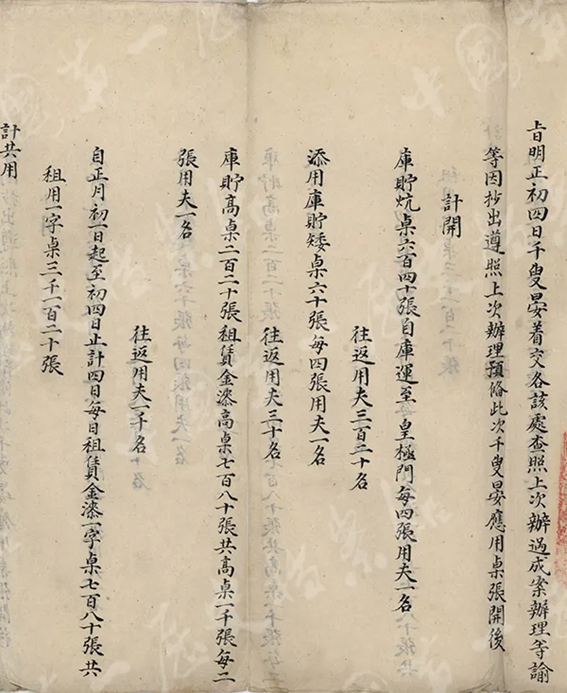 㫖明正初四日千叟晏着交各該處查照上次辦過成案辦理等諭
等因抄出遵照上次辦理預俻此次千叟晏應用桌張開後
計開
庫貯炕桌六百四十張自庫運至皇極門每四張用夫一名
往返用夫三百二十名
添用庫貯矮桌六十張每四張用夫一名
往返用夫三十名
庫貯高桌二百二十張租賃金漆高桌七百八十張共高桌一千張每二
張用夫一名
往返用夫一千名
自正月初一日起至初四日止計四日每日租賃金漆一字桌七百八十張共
租用一字桌三千一百二十張
計共用